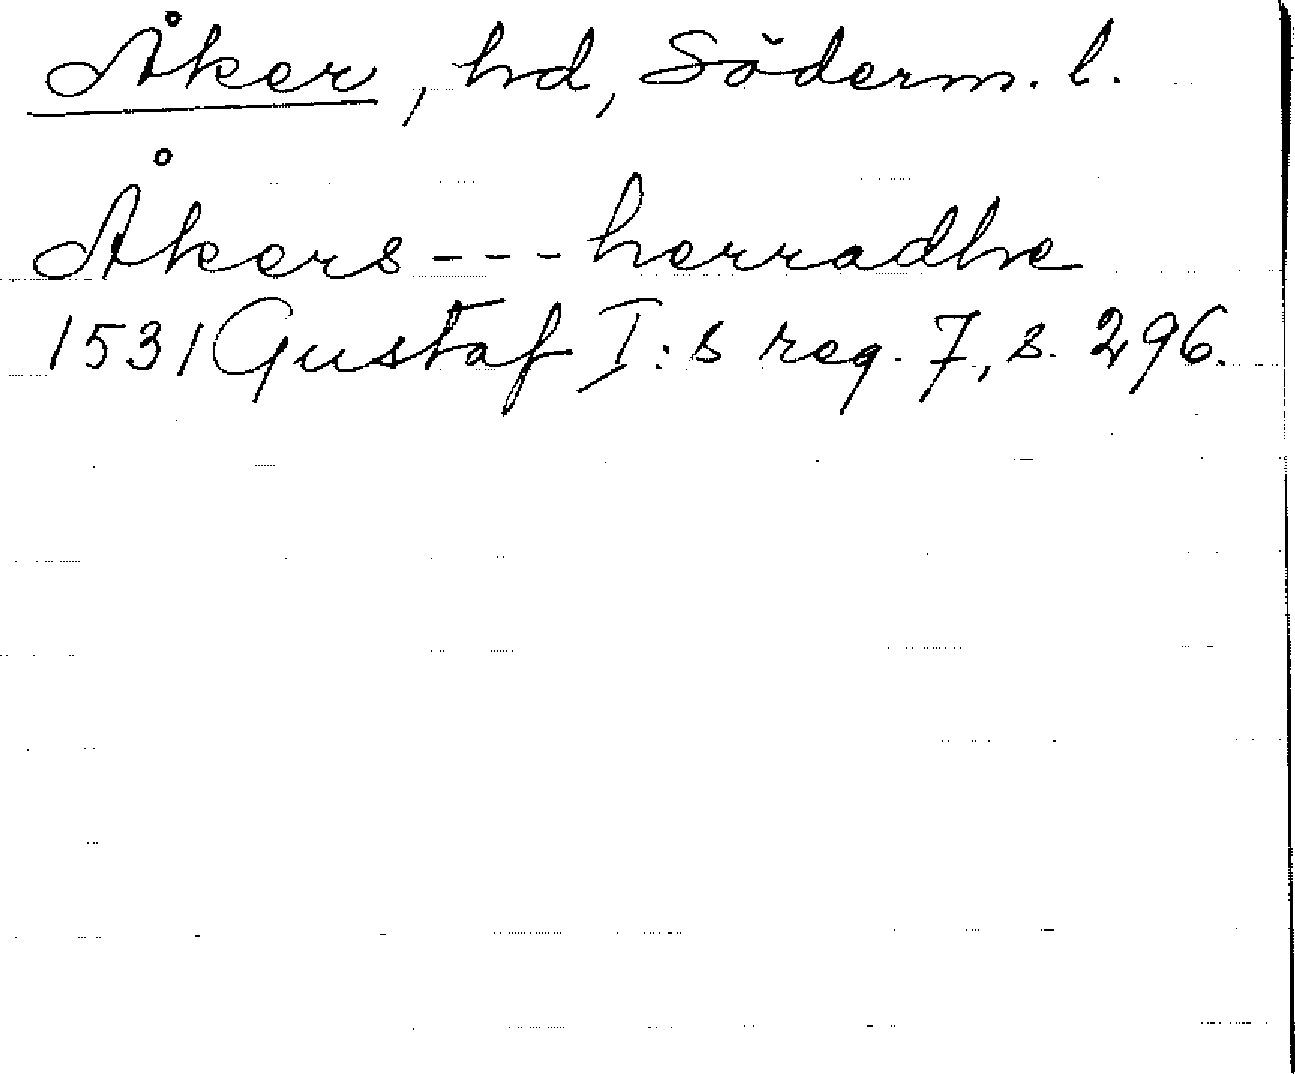 Åker, hd, Söderm. l.
Åkers---herradhe
1531 Gustaf I:s reg. 7, s. 296.